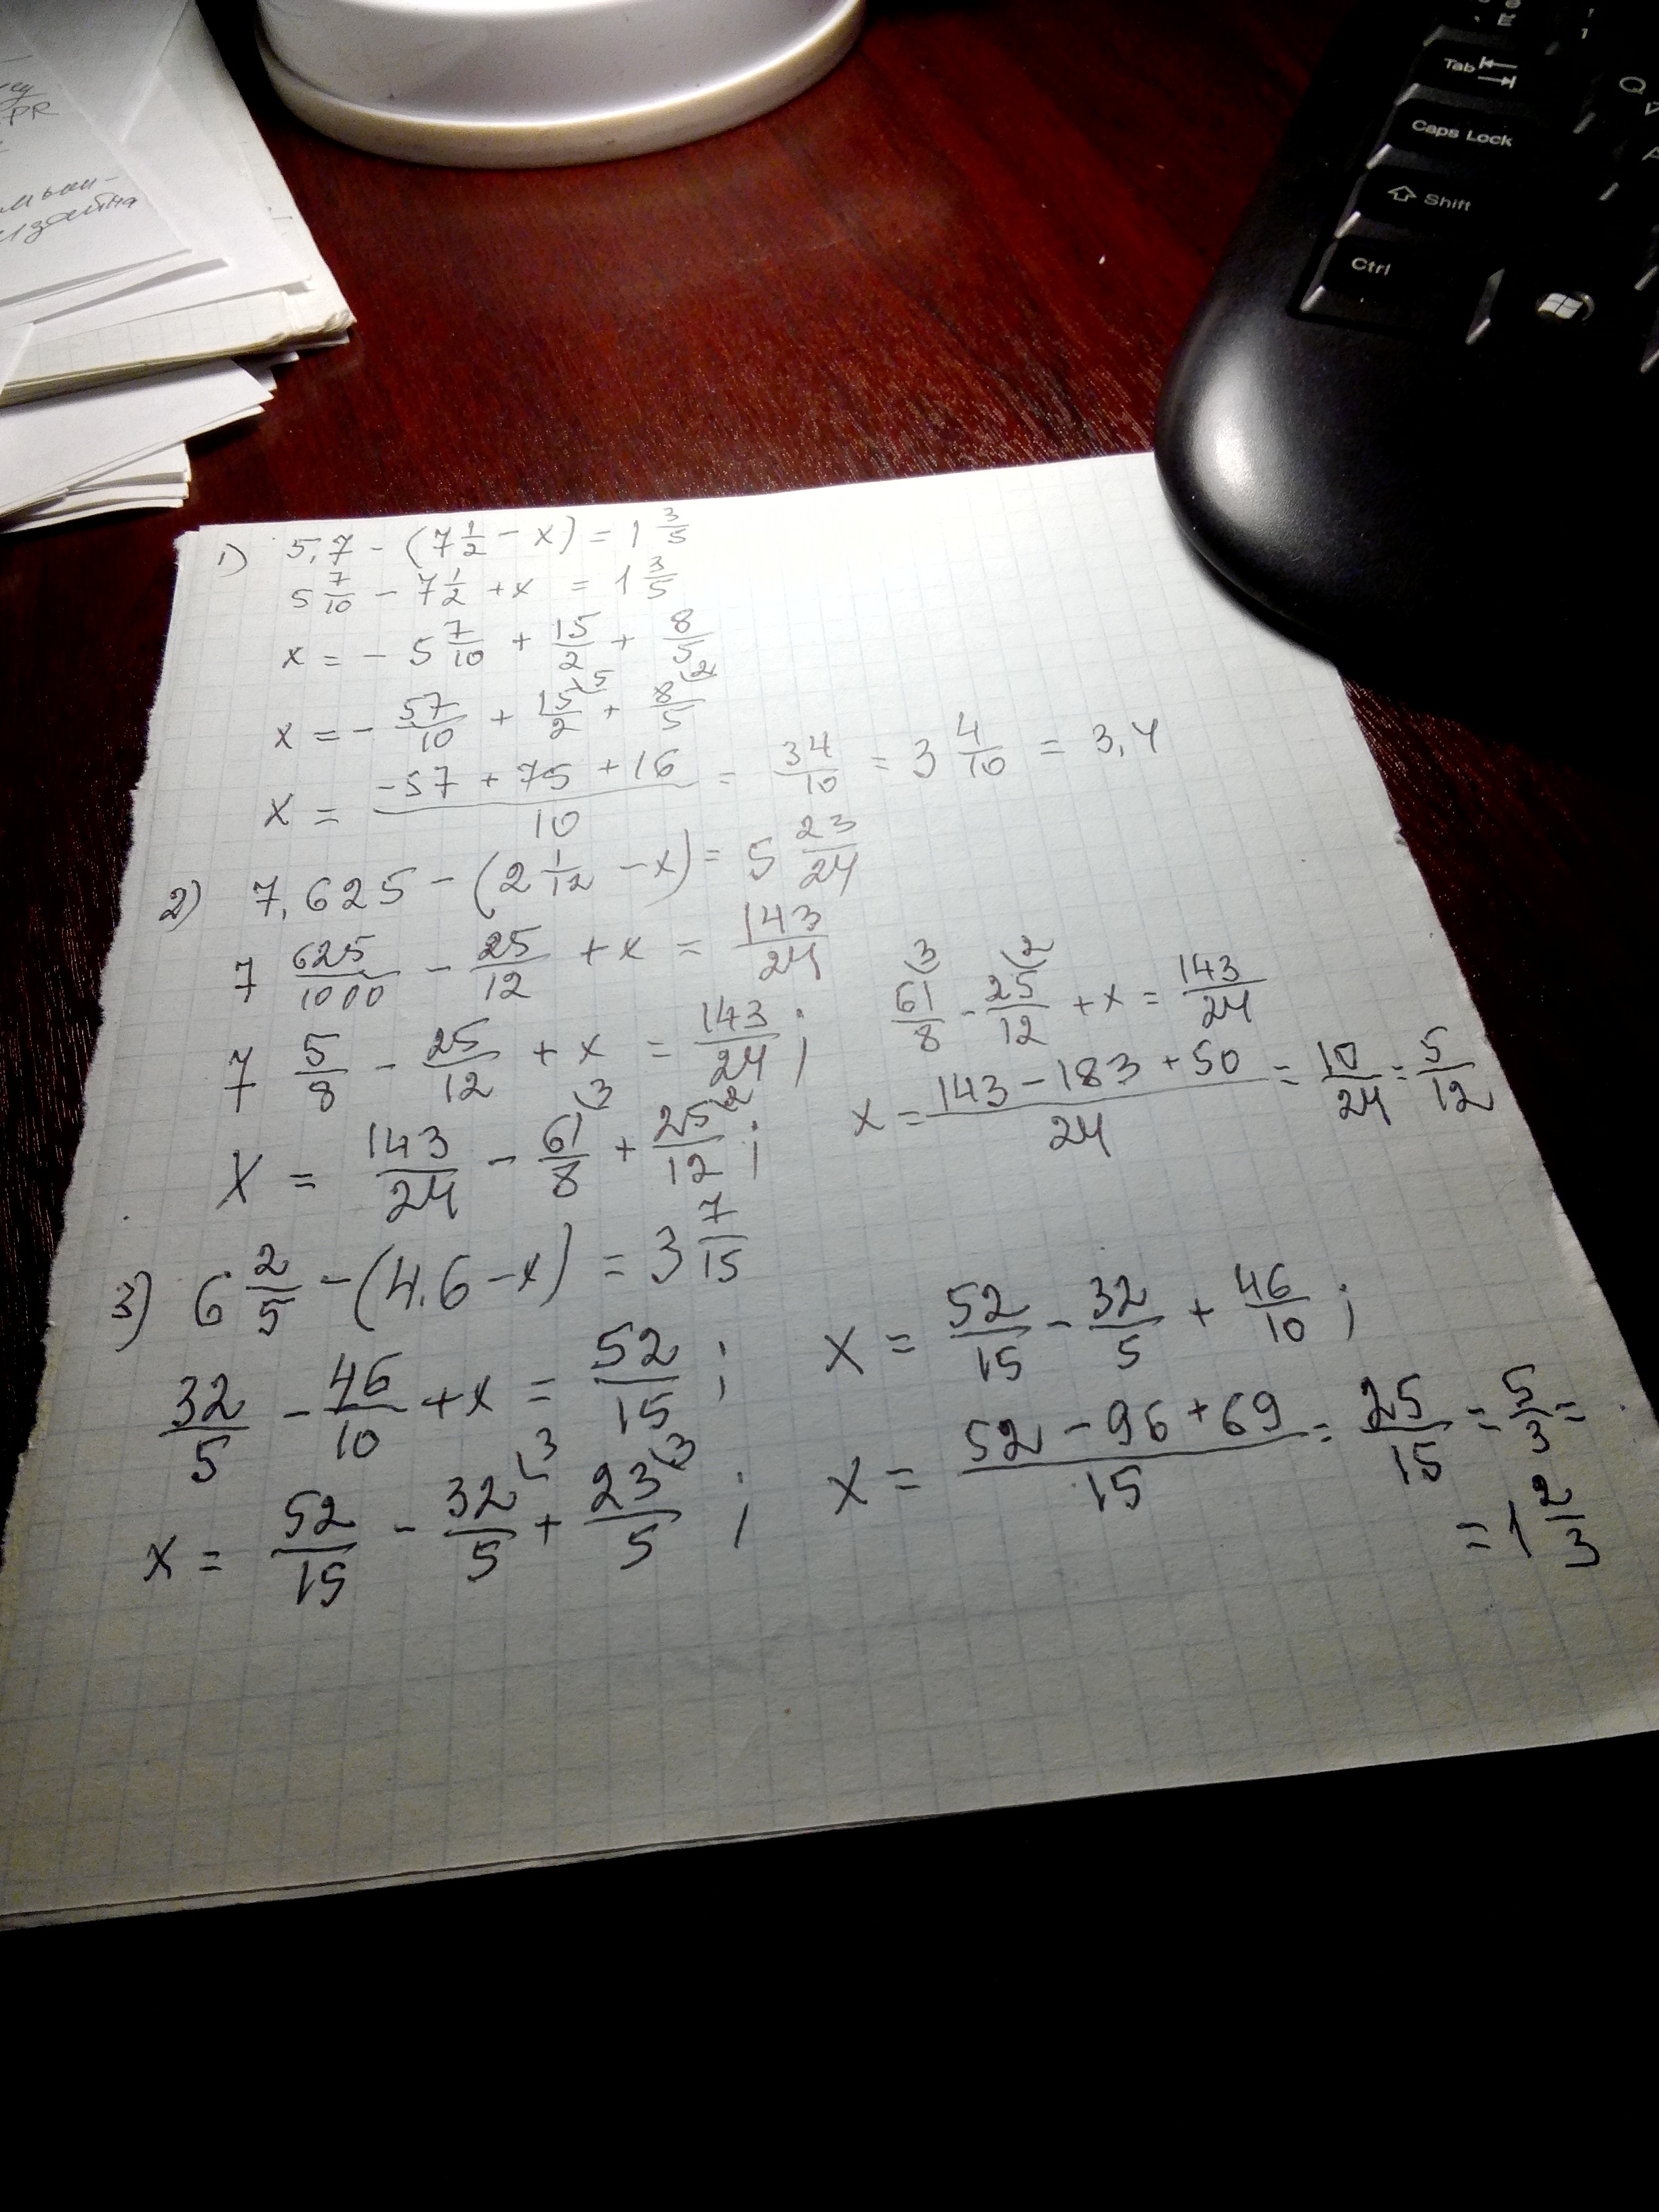 PR
Tab
Q
Caps Lock
A
Shift
Ctrl
1) 5,7 - (7 1/2 - x) = 1 3/5
5 7/10 - 7 1/2 + x = 1 3/5
x = - 5 7/10 + 15/2 + 8/5
x = - 57/10 + 15/2 (5 + 8/5 (2
x = (-57 + 75 + 16)/10 = 34/10 = 3 4/10 = 3,4
2) 7,625 - (2 1/12 - x) = 5 23/24
7 625/1000 - 25/12 + x = 143/24
7 5/8 - 25/12 + x = 143/24 ; 61/8 (3 - 25/12 (2 + x = 143/24
x = 143/24 - 61/8 (3 + 25/12 (2 ; x = (143 - 183 + 50)/24 = 10/24 = 5/12
3) 6 2/5 - (4,6 - x) = 3 7/15
32/5 - 46/10 + x = 52/15 ; x = 52/15 - 32/5 + 46/10 ;
x = 52/15 - 32/5 (3 + 23/5 (3 ; x = (52 - 96 + 69)/15 = 25/15 = 5/3 =
= 1 2/3